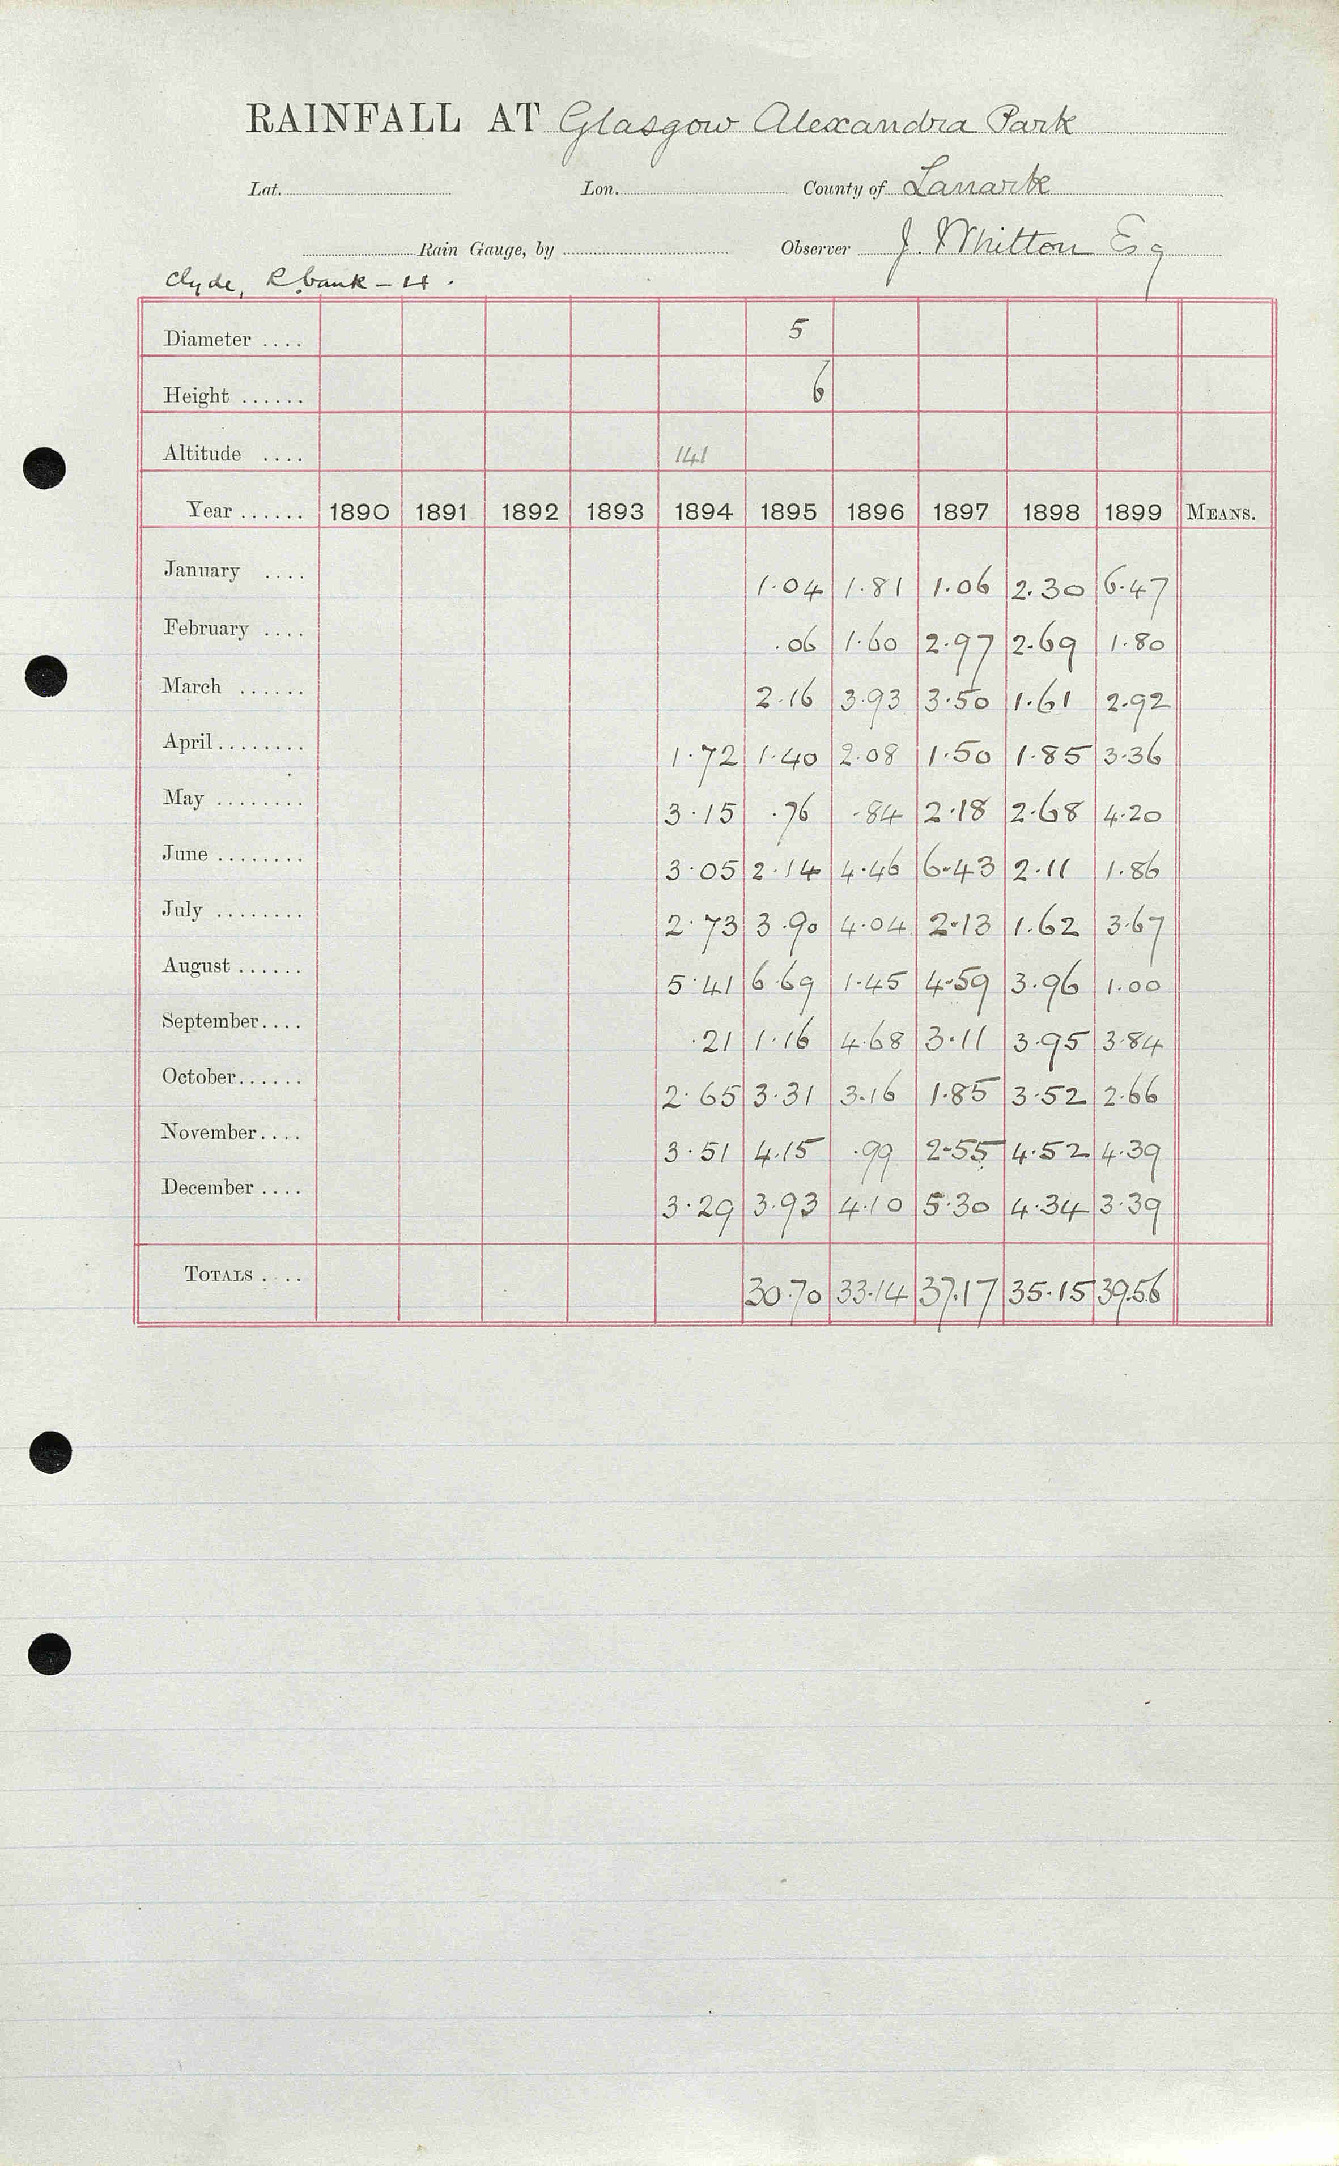 RAINFALL AT Glasgow Alexandra Park
Lat. Lon. County of Lanark
Rain Gauge, by Observer J. Whitton Esq
Clyde, R. bank - 14.
Diameter .... 5
Height ...... 6
Altitude .... 141
Year ...... 1890 1891 1892 1893 1894 1895 1896 1897 1898 1899 MEANS.
January .... 1.04 1.81 1.06 2.30 6.47
February .... .06 1.60 2.97 2.69 1.80
March ...... 2.16 3.93 3.50 1.61 2.92
April ........ 1.72 1.40 2.08 1.50 1.85 3.36
May ........ 3.15 .76 .84 2.18 2.68 4.20
June ........ 3.05 2.14 4.46 6.43 2.11 1.86
July ........ 2.73 3.90 4.04 2.13 1.62 3.67
August ...... 5.41 6.69 1.45 4.59 3.96 1.00
September.... .21 1.16 4.68 3.11 3.95 3.84
October...... 2.65 3.31 3.16 1.85 3.52 2.66
November.... 3.51 4.15 .99 2.55 4.52 4.39
December .... 3.29 3.93 4.10 5.30 4.34 3.39
TOTALS .... 30.70 33.14 37.17 35.15 39.56